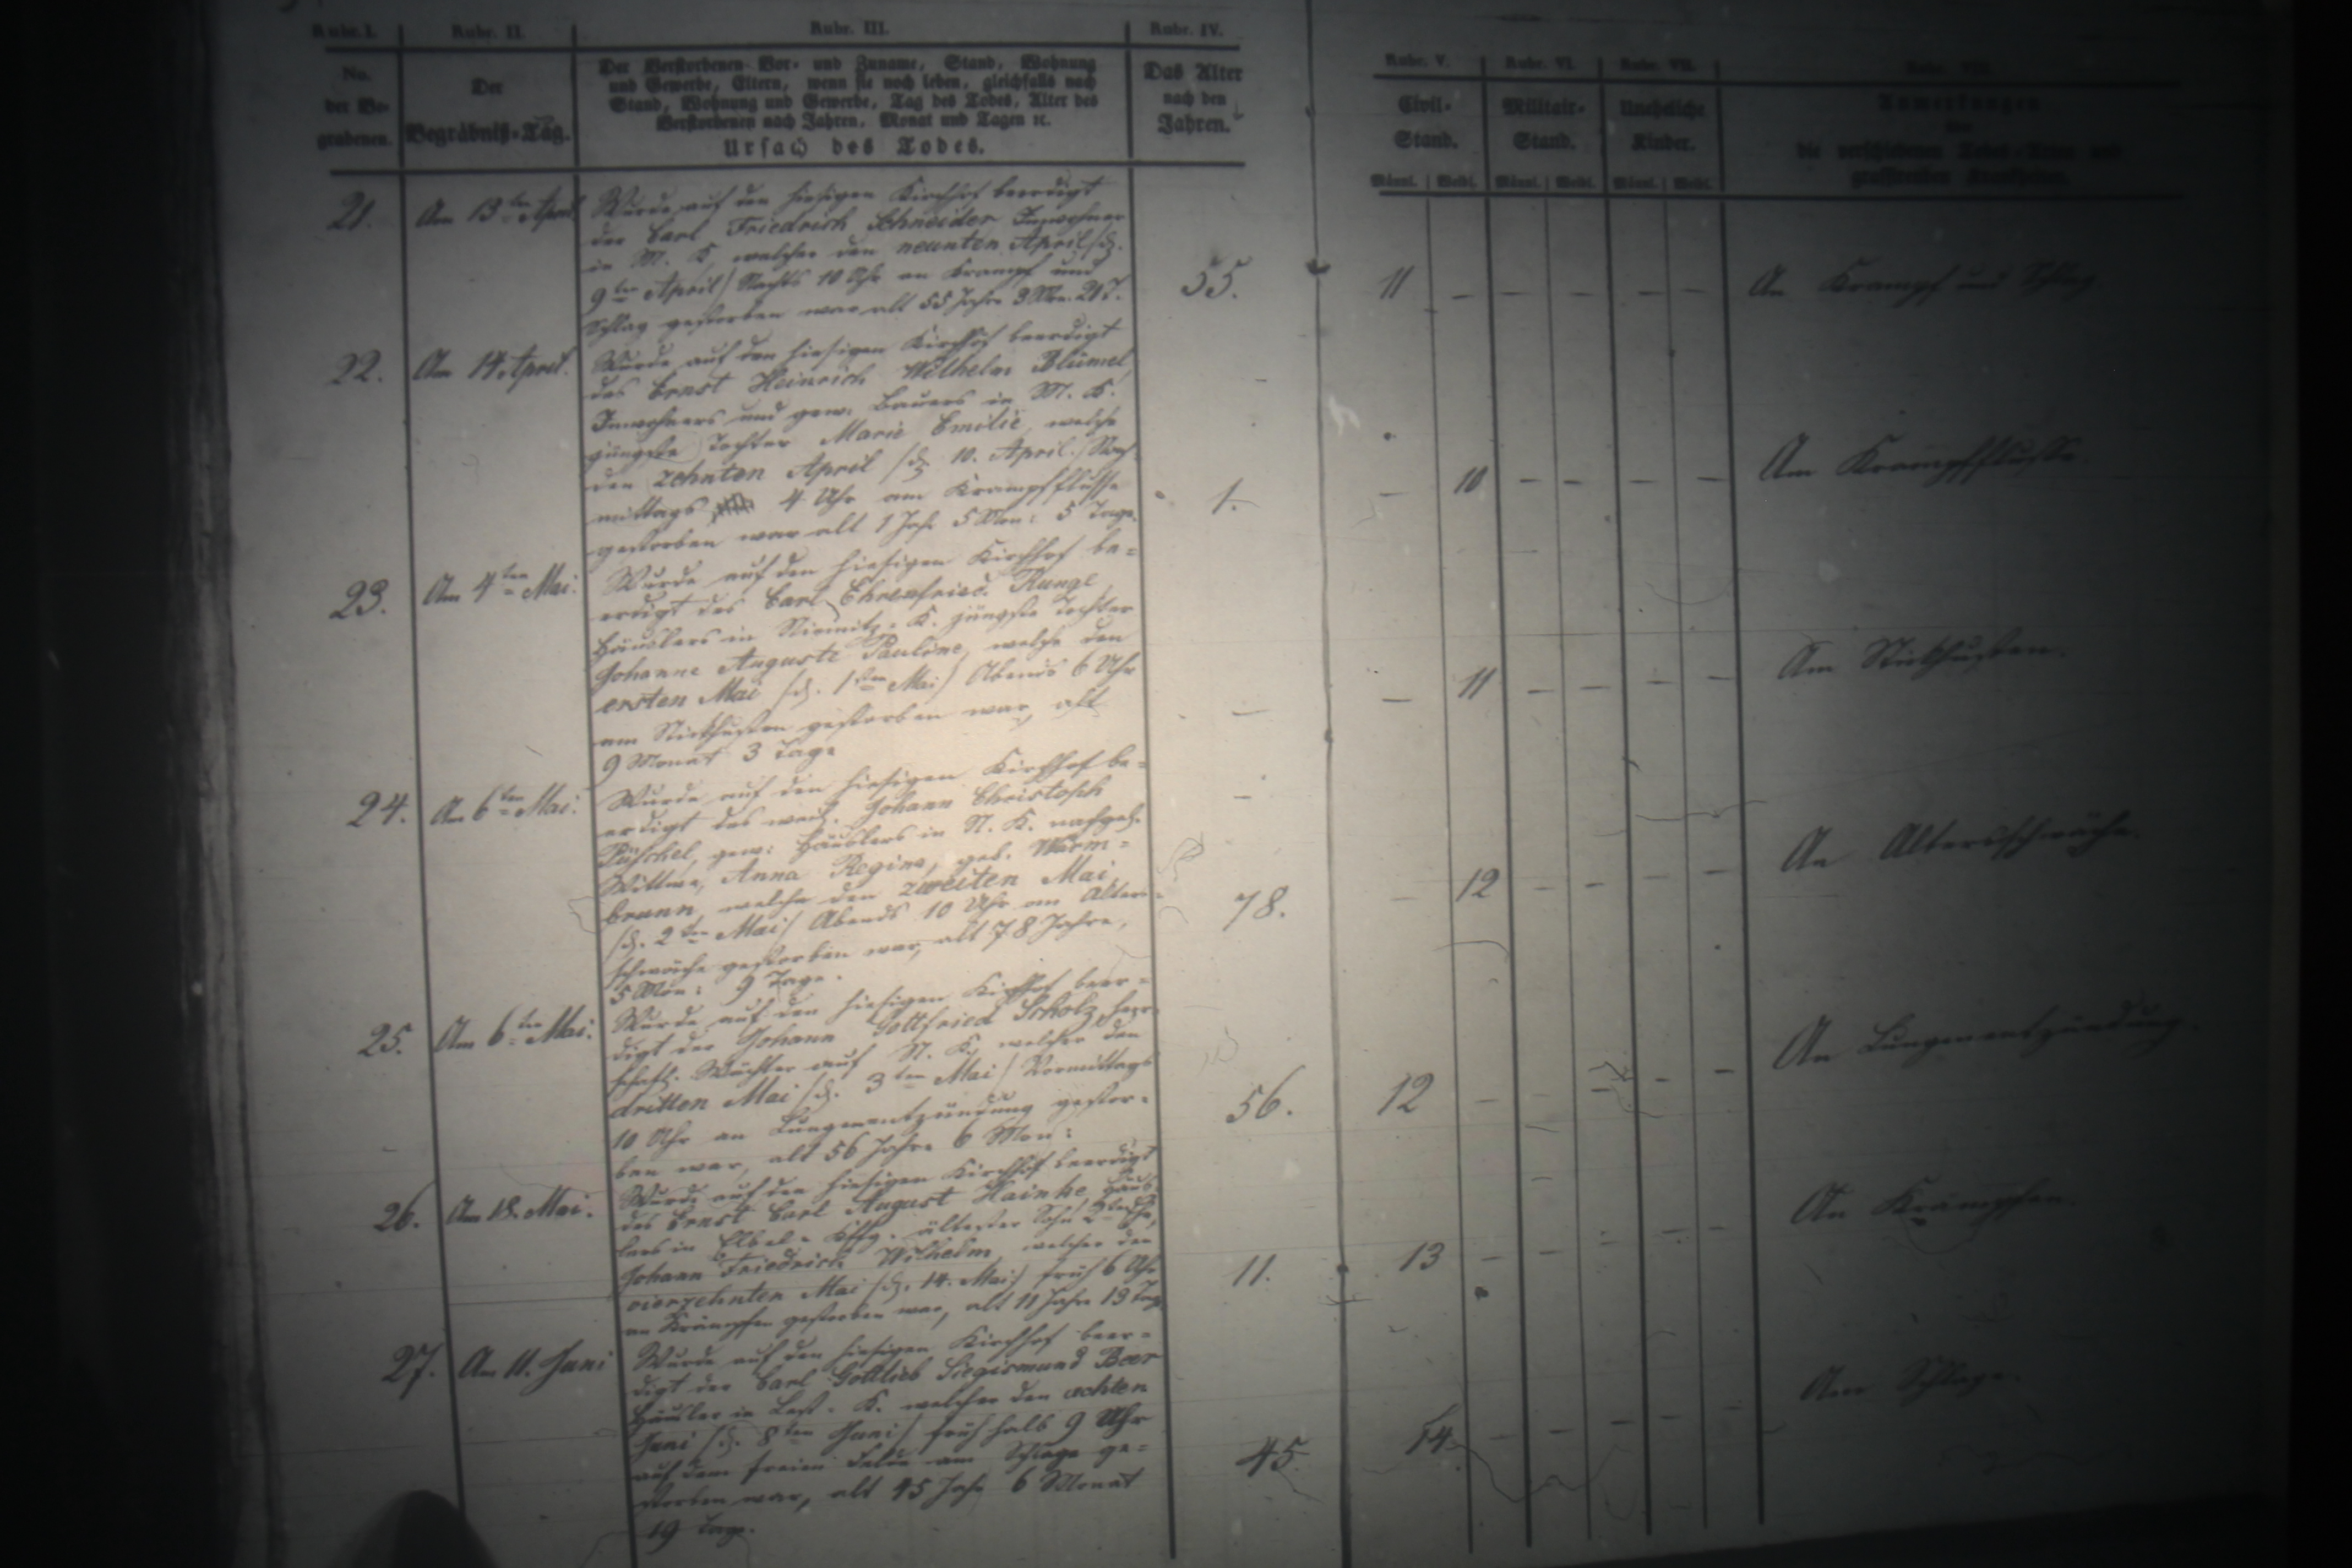 Rubr. I.
Rubr. II.
Rubr. III.
Rubr. IV.
Rubr. V.
Rubr. VI.
Rubr. VII.
No.
der Be-
grabenen.
Der
Begräbniß-Tag.
Der Verstorbenen Vor- und Zuname, Stand, Wohnung
und Gewerbe, Eltern, wenn sie noch leben, gleichfalls nach
Stand, Wohnung und Gewerbe, Tag des Todes, Alter des
Verstorbenen nach Jahren, Monat und Tagen ꝛc.
Ursach des Todes.
Das Alter
nach den
Jahren.
Civil-
Stand.
Militair-
Stand.
Uneheliche
Kinder.
Anmerkungen
die verschiedenen Todes-Arten und
grassirenden Krankheiten.
Männl. | Weibl. Männl. | Weibl. Männl. | Weibl.
21. Am 13ten April
Wurde auf den hiesigen Kirchhof beerdigt
der Carl Friedrich Schneider Inwohner
in M. K. welcher den neunten April /d.
9ten April/ Nachts 10 Uhr an Krampf und
Schlag gestorben war alt 55 Jahre 3 Mon. 21 T.
55. 11 – – – – –
An Krampf und Schlag
22. Am 14. April.
Wurde auf den hiesigen Kirchhof beerdigt
des Ernst Heinrich Wilhelm Blümel,
Inwohners und gew. Bauers in M. K.
jüngste Tochter Marie Emilie, welche
den zehnten April /d. 10. April./ Nach-
mittags 4 Uhr am Krampfflusse
gestorben war alt 1 Jahr 5 Mon: 5 Tage.
1. – 10 – – – –
Am Krampfflusse.
23. Am 4ten Mai.
Wurde auf den hiesigen Kirchhof be-
erdigt des Carl Ehrenfried Runge
Häuslers in K. jüngste Tochter
Johanne Auguste Pauline, welche den
ersten Mai /d. 1ten Mai/ Abends 6 Uhr
am Stickhusten gestorben war, alt
9 Monat 3 Tage
– – 11 – – – –
Am Stickhusten.
24. Am 6ten Mai.
Wurde auf den hiesigen Kirchhof be-
erdigt des weil. Johann Christoph
Püschel, gew: Häuslers in N. K. nachgel.
Wittwe, Anna Regina, geb. Warm-
brunn, welche den zweiten Mai
/d. 2ten Mai/ Abends 10 Uhr an Alters-
schwäche gestorben war, alt 78 Jahre,
5 Mon: 9 Tage.
78. – 12 – – – –
An Altersschwäche.
25. Am 6ten Mai.
Wurde auf den hiesigen Kirchhof beer-
digt der Johann Gottfried Scholz, herr-
schaftl. Wächter auf N. K. welcher den
dritten Mai /d. 3ten Mai/ Vormittags
10 Uhr an Lungenentzündung gestor-
ben war, alt 56 Jahre 6 Mon:
56. 12 – – – –
An Lungenentzündung.
26. Am 18. Mai.
Wurde auf den hiesigen Kirchhof beerdigt
des Ernst Carl August Hainke, Häus-
lers in ältester Sohn
Johann Friedrich Wilhelm, welcher den
vierzehnten Mai /d. 14. Mai/ früh 6 Uhr
an Krämpfen gestorben war, alt 11 Jahre 19 Tag.
11. 13 – – – – –
An Krämpfen.
27. Am 11. Juni
Wurde auf den hiesigen Kirchhof beer-
digt der Carl Gottlieb Siegismund Beer
Häusler in K. welcher den achten
Juni /d. 8ten Juni/ früh halb 9 Uhr
auf dem freien Felde am Schlage ge-
storben war, alt 45 Jahr 6 Monat
19 Tage.
45. 14 – – – – –
Am Schlage.